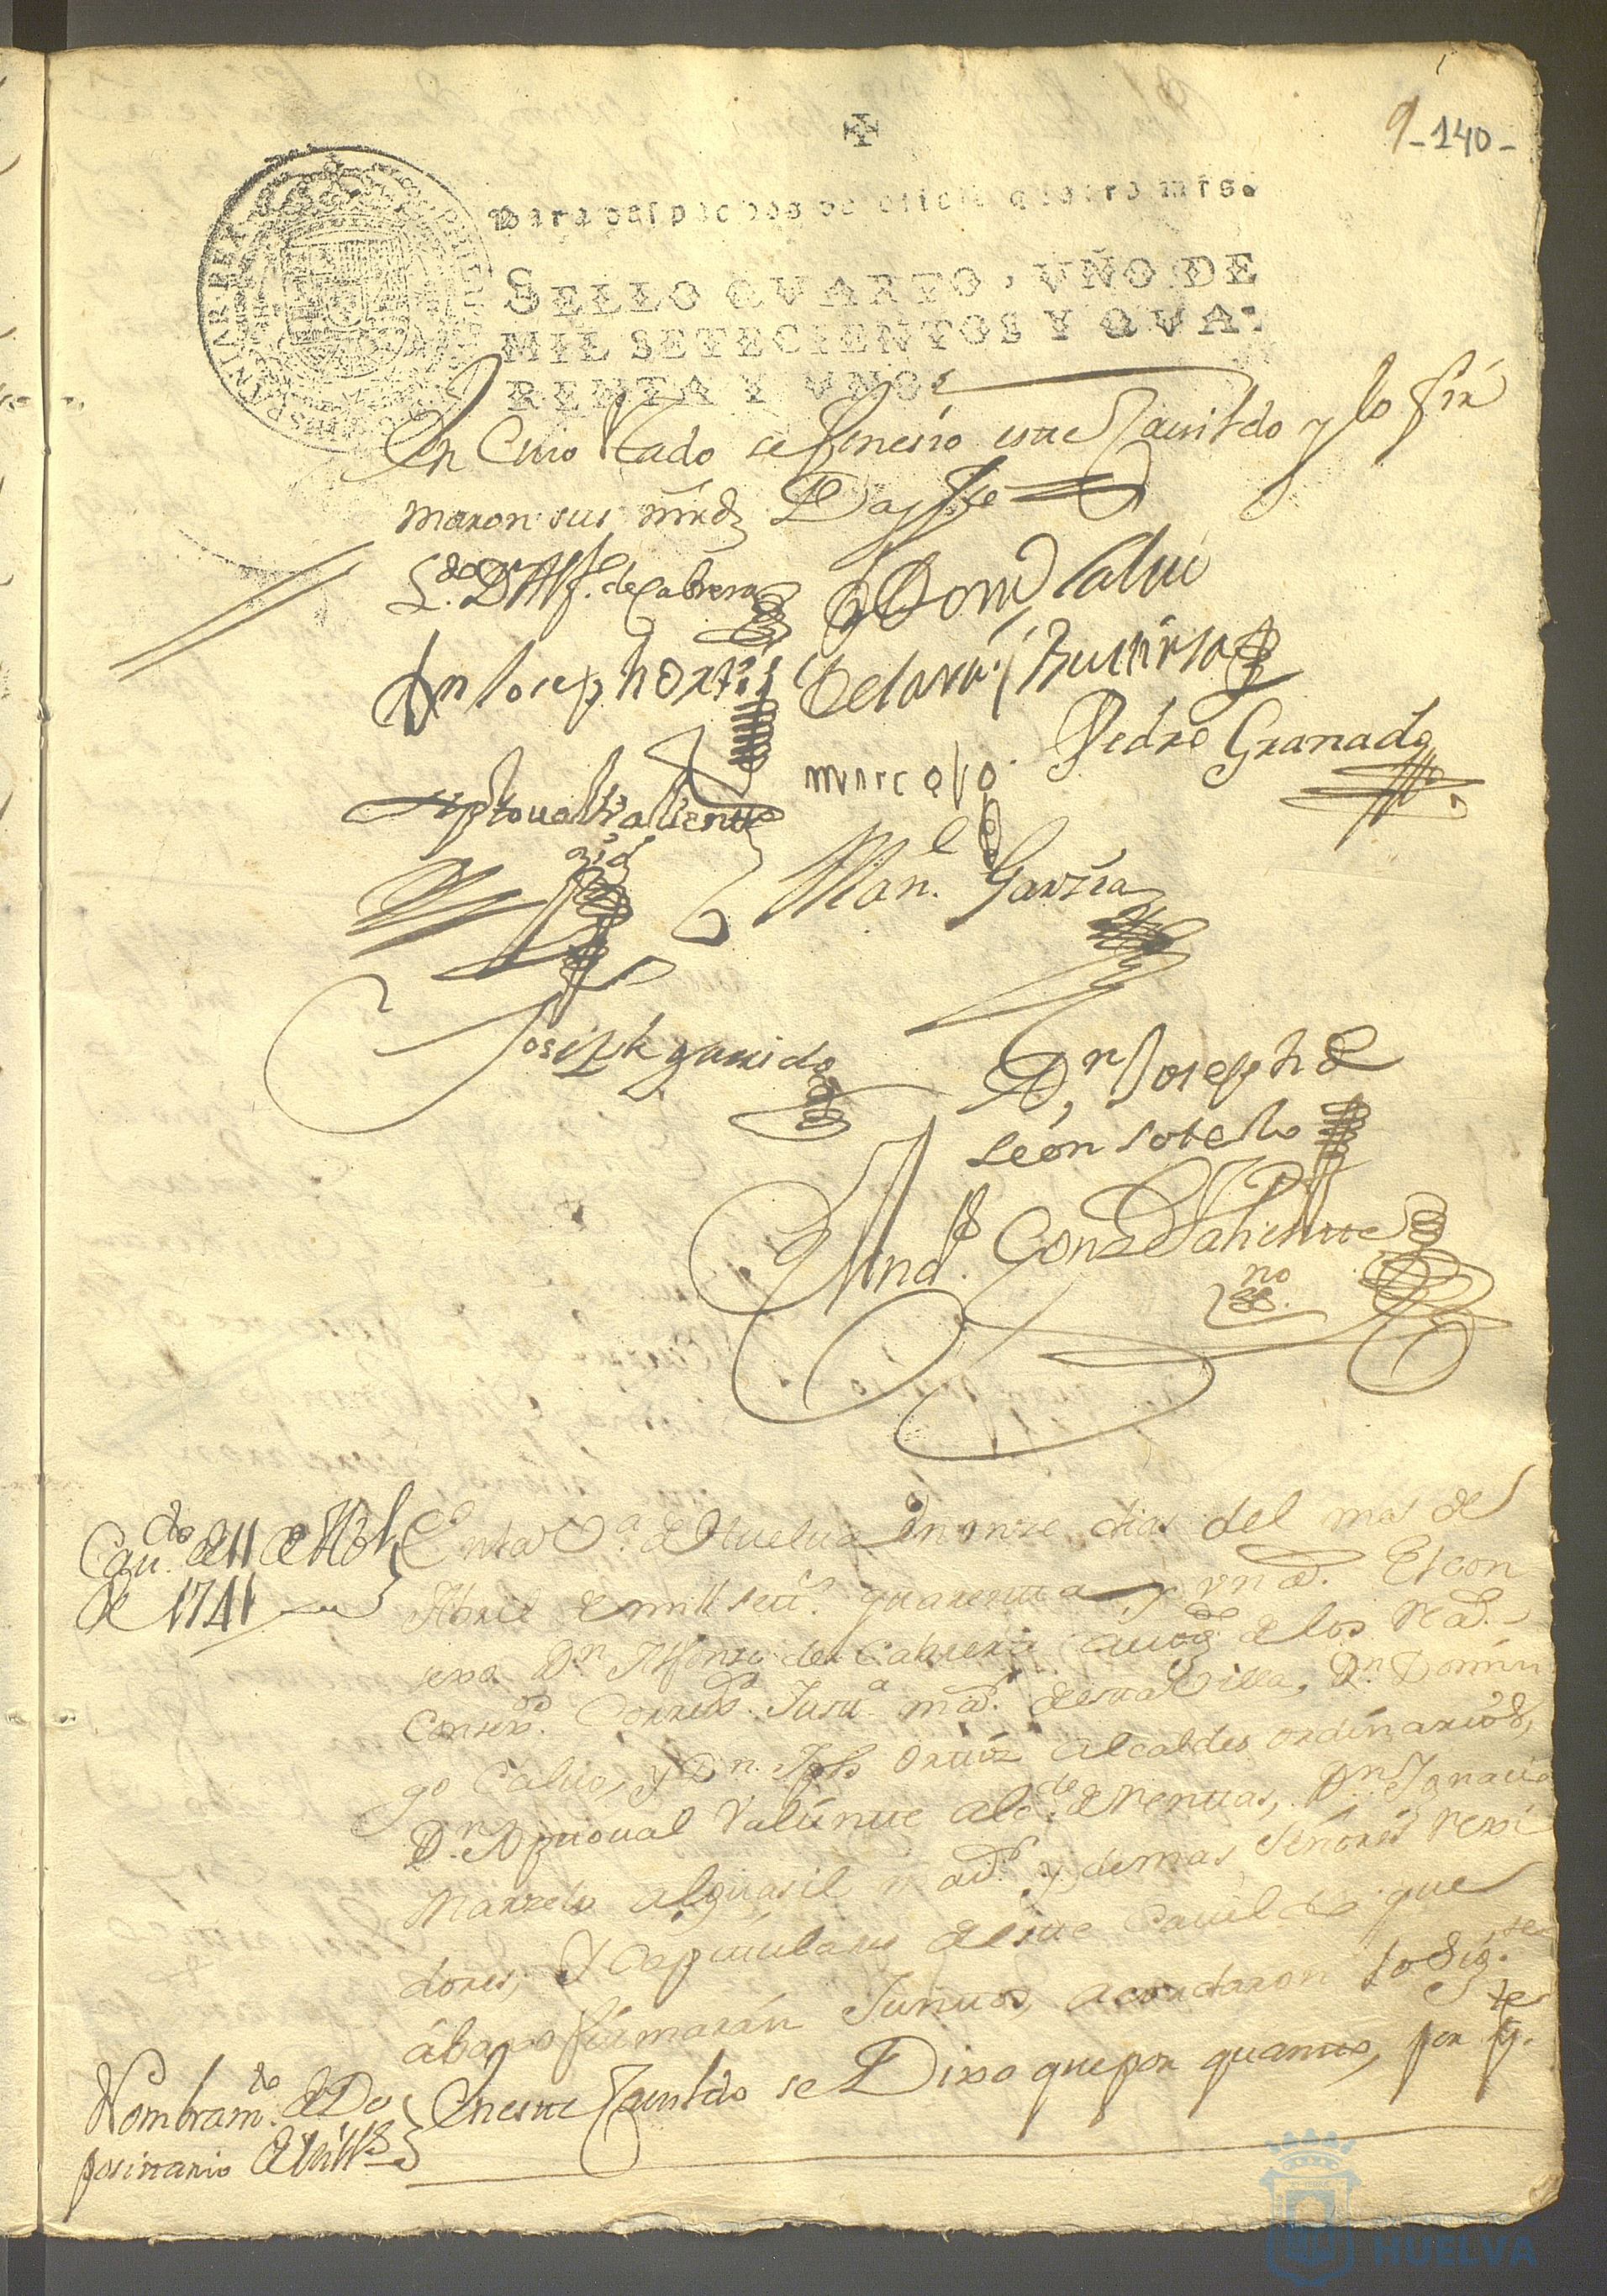 9 - 140 -
Para despachos de oficio quatro mrs.
SELLO QVARTO, VÑO DE
MIL SETECIENTOS Y QVA-
RENTA Y VNO.
HISPANIAR REX
En Cuio estado se feneсio este Cauildo y lo fir
maron sus mrds Doy fee
Ldo. Dn Alfo. de Cabrera
Domo Caluo
Dn Joseph Ortiz
Pedro Granado
Xptoual Valiente
Marcelo
Man.l Garzia
Joseph garrido
Dn Joseph de
León Sotelo
Ands. Gonz Valiente
no
Cau.do de 11 de Abl
de 1741
En esta Va. de Huelua en onze dias del mes de
Abril de mill settos. quarenta y un as. El con
sexo Dn Alfonso de Cabrera Auogdo de los Rs.
Consexos. Correxor. Justa. mor. de esta Villa, Dn. Domin
go Caluo, y Dn. Jph Ortiz alcaldes ordinarios,
Dn. Xptoual Valiente alcde. de Rentas, Dn Ignacio
Marzelo alguasil mor. y demas Señores rexi
dores, y Capitulares de este Cauildo que
abaxo firmarán Juntos, acordaron lo sigte
Nombramto. de De
positario de Vulls
En este Cauildo se Dixo que por quanto, por pte.
HUELVA